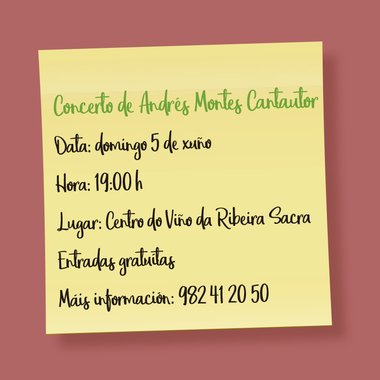 Concerto de Andrés Montes Cantautor
Data: domingo 5 de xuño
Hora: 19:00 h
Lugar: Centro do Viño da Ribeira Sacra
Entradas gratuitas
Máis información: 982 41 20 50